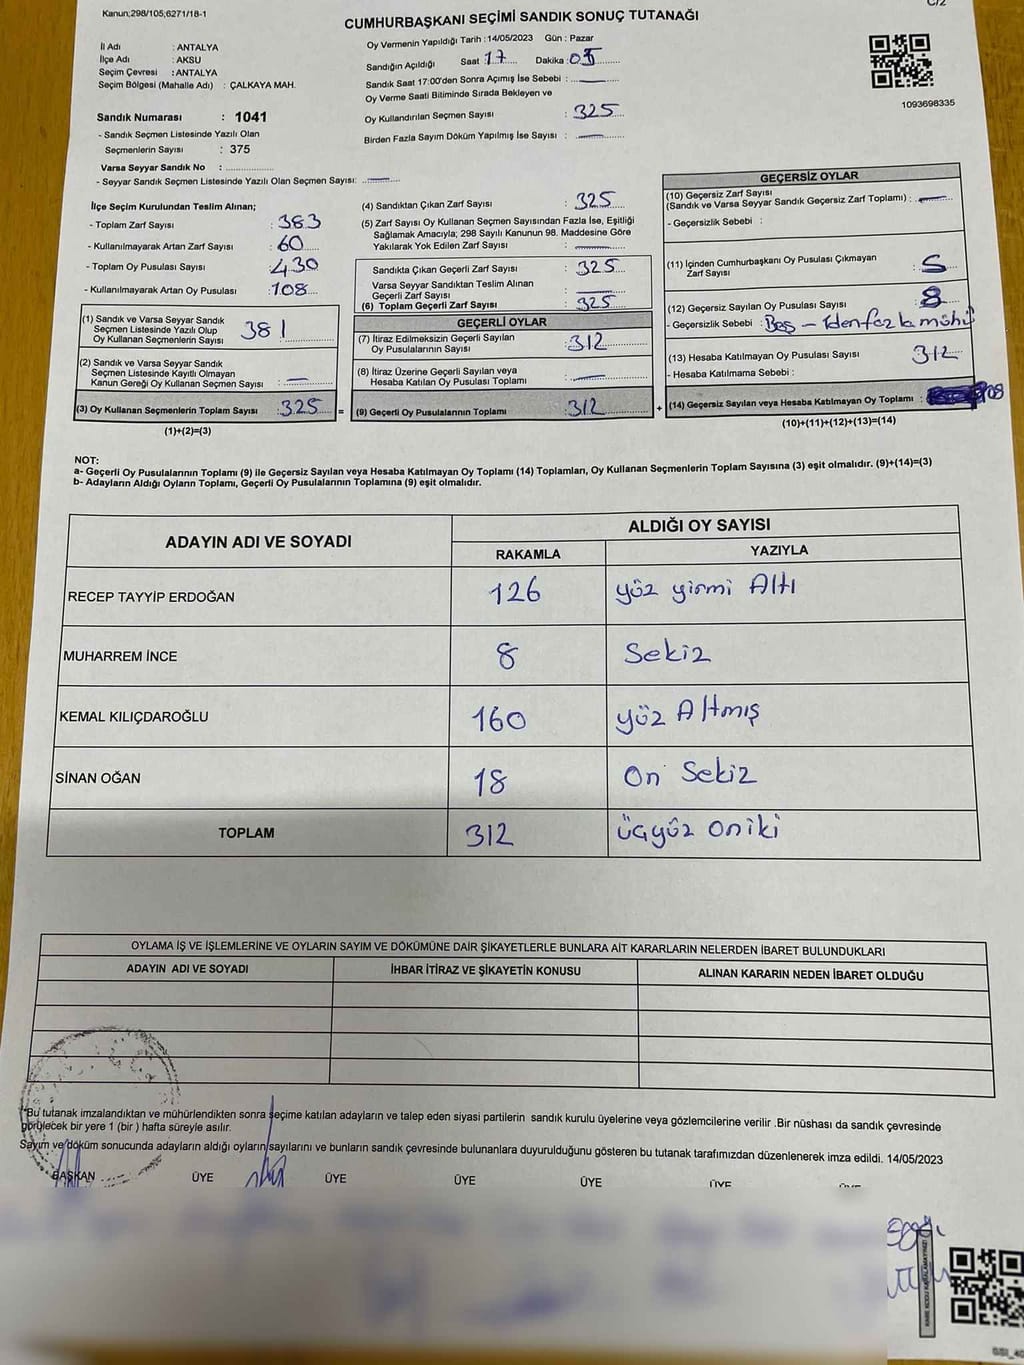 Kanun;298/105;6271/18-1
C/2
CUMHURBAŞKANI SEÇİMİ SANDIK SONUÇ TUTANAĞI
İl Adı : ANTALYA
İlçe Adı : AKSU
Seçim Çevresi : ANTALYA
Seçim Bölgesi (Mahalle Adı) : ÇALKAYA MAH.
Sandık Numarası : 1041
- Sandık Seçmen Listesinde Yazılı Olan
Seçmenlerin Sayısı : 375
Varsa Seyyar Sandık No : ....................
- Seyyar Sandık Seçmen Listesinde Yazılı Olan Seçmen Sayısı: —
Oy Vermenin Yapıldığı Tarih :14/05/2023 Gün : Pazar
Sandığın Açıldığı Saat : 17 Dakika : 05
Sandık Saat 17:00'den Sonra Açımış İse Sebebi : —
Oy Verme Saati Bitiminde Sırada Bekleyen ve
Oy Kullandırılan Seçmen Sayısı : 325
Birden Fazla Sayım Döküm Yapılmış İse Sayısı : —
1093698335
İlçe Seçim Kurulundan Teslim Alınan;
- Toplam Zarf Sayısı : 383
- Kullanılmayarak Artan Zarf Sayısı : 60
- Toplam Oy Pusulası Sayısı : 430
- Kullanılmayarak Artan Oy Pusulası : 108
(1) Sandık ve Varsa Seyyar Sandık
Seçmen Listesinde Yazılı Olup
Oy Kullanan Seçmenlerin Sayısı 381
(2) Sandık ve Varsa Seyyar Sandık
Seçmen Listesinde Kayıtlı Olmayan
Kanun Gereği Oy Kullanan Seçmen Sayısı : —
(3) Oy Kullanan Seçmenlerin Toplam Sayısı : 325 =
(1)+(2)=(3)
(4) Sandıktan Çıkan Zarf Sayısı : 325
(5) Zarf Sayısı Oy Kullanan Seçmen Sayısından Fazla İse, Eşitliği
Sağlamak Amacıyla; 298 Sayılı Kanunun 98. Maddesine Göre
Yakılarak Yok Edilen Zarf Sayısı : —
Sandıkta Çıkan Geçerli Zarf Sayısı : 325
Varsa Seyyar Sandıktan Teslim Alınan
Geçerli Zarf Sayısı : —
(6) Toplam Geçerli Zarf Sayısı : 325
GEÇERLİ OYLAR
(7) İtiraz Edilmeksizin Geçerli Sayılan
Oy Pusulalarının Sayısı : 312
(8) İtiraz Üzerine Geçerli Sayılan veya
Hesaba Katılan Oy Pusulası Toplamı : —
(9) Geçerli Oy Pusulalarının Toplamı : 312 +
GEÇERSİZ OYLAR
(10) Geçersiz Zarf Sayısı
(Sandık ve Varsa Seyyar Sandık Geçersiz Zarf Toplamı) : —
- Geçersizlik Sebebi :
(11) İçinden Cumhurbaşkanı Oy Pusulası Çıkmayan
Zarf Sayısı : 5
(12) Geçersiz Sayılan Oy Pusulası Sayısı : 8
- Geçersizlik Sebebi : Boş - 1den fazla mühü
(13) Hesaba Katılmayan Oy Pusulası Sayısı : 312
- Hesaba Katılmama Sebebi :
(14) Geçersiz Sayılan veya Hesaba Katılmayan Oy Toplamı :
(10)+(11)+(12)+(13)=(14)
NOT:
a- Geçerli Oy Pusulalarının Toplamı (9) ile Geçersiz Sayılan veya Hesaba Katılmayan Oy Toplamı (14) Toplamları, Oy Kullanan Seçmenlerin Toplam Sayısına (3) eşit olmalıdır. (9)+(14)=(3)
b- Adayların Aldığı Oyların Toplamı, Geçerli Oy Pusulalarının Toplamına (9) eşit olmalıdır.
ADAYIN ADI VE SOYADI
ALDIĞI OY SAYISI
RAKAMLA YAZIYLA
RECEP TAYYİP ERDOĞAN 126 yüz yirmi Altı
MUHARREM İNCE 8 Sekiz
KEMAL KILIÇDAROĞLU 160 yüz Altmış
SİNAN OĞAN 18 On Sekiz
TOPLAM 312 üçyüz oniki
OYLAMA İŞ VE İŞLEMLERİNE VE OYLARIN SAYIM VE DÖKÜMÜNE DAİR ŞİKAYETLERLE BUNLARA AİT KARARLARIN NELERDEN İBARET BULUNDUKLARI
ADAYIN ADI VE SOYADI İHBAR İTİRAZ VE ŞİKAYETİN KONUSU ALINAN KARARIN NEDEN İBARET OLDUĞU
*Bu tutanak imzalandıktan ve mühürlendikten sonra seçime katılan adayların ve talep eden siyasi partilerin sandık kurulu üyelerine veya gözlemcilerine verilir .Bir nüshası da sandık çevresinde
görülecek bir yere 1 (bir ) hafta süreyle asılır.
Sayım ve döküm sonucunda adayların aldığı oyların sayılarını ve bunların sandık çevresinde bulunanlara duyurulduğunu gösteren bu tutanak tarafımızdan düzenlenerek imza edildi. 14/05/2023
BAŞKAN ÜYE ÜYE ÜYE ÜYE ÜYE ÜYE